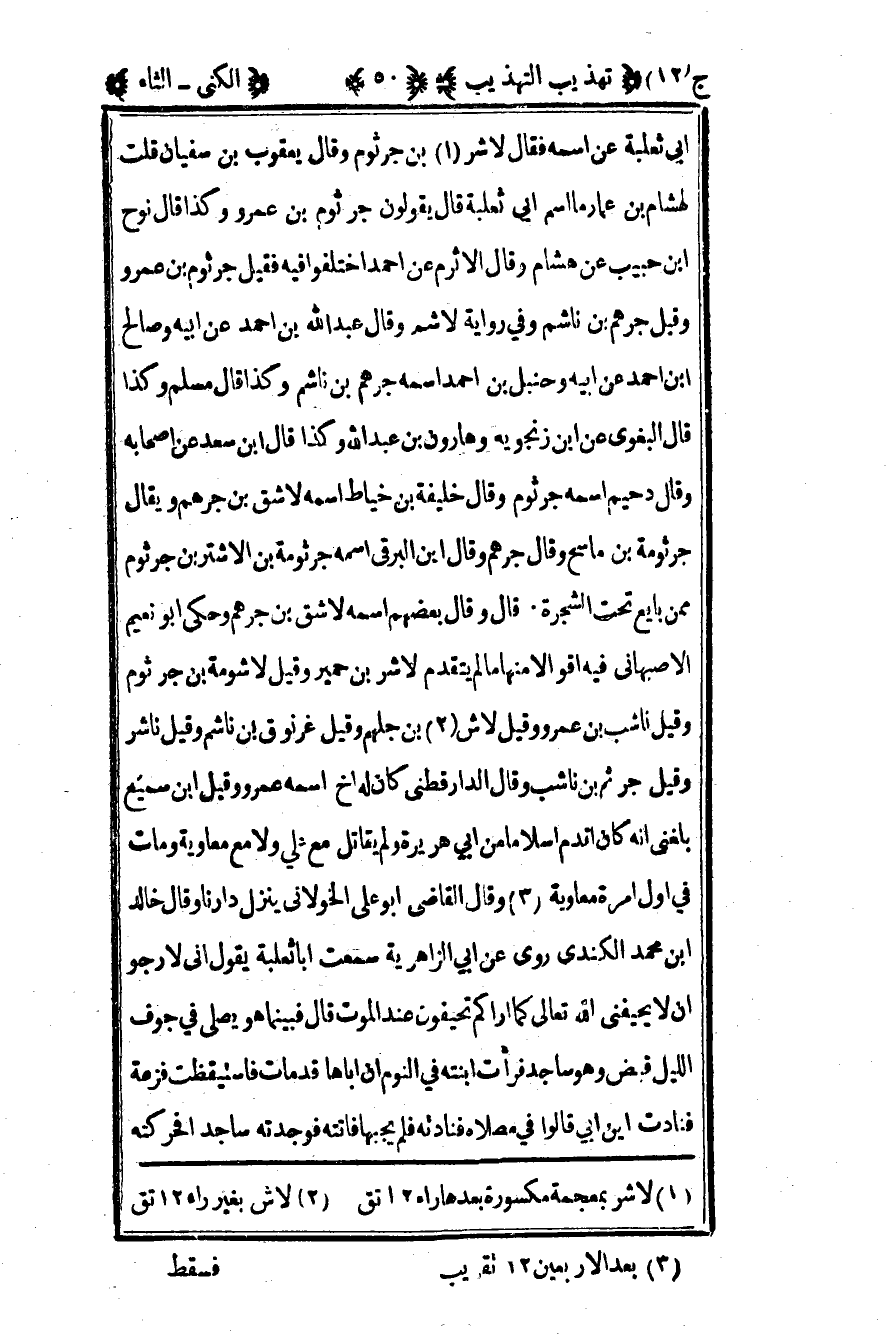 ج (١٢) تهذيب التهذيب ٥٠ الكنى ـ الثاء
ابي ثعلبة عن اسمه فقال لاشر (١) بن جرثوم وقال يعقوب بن سفيان قلت
لهشام بن عمار ما اسم ابي ثعلبة قال يقولون جرثوم بن عمرو وكذا قال نوح
ابن حبيب عن هشام وقال الاثرم عن احمد اختلفوا فيه فقيل جرثوم بن عمرو
وقيل جرهم بن ناشم وفي رواية لاشم وقال عبدالله بن احمد عن ابيه وصالح
ابن احمد عن ابيه وحنبل بن احمد اسمه جرهم بن ناشم وكذا قال مسلم وكذا
قال البغوى عن ابن زنجويه وهارون بن عبدالله وكذا قال ابن سعد عن اصحابه
وقال دحيم اسمه جرثوم وقال خليفة بن خياط اسمه لاشق بن جرهم ويقال
جرثومة بن ماسح وقال جرهم وقال ابن البرقى اسمه جرثومة بن الاشتر بن جرثوم
ممن بايع تحت الشجرة ٠ قال وقال بعضهم اسمه لاشق بن جرهم وحكى ابو نعيم
الاصبهانى فيه اقوالا منها مالم يتقدم لاشر بن حمير وقيل لاشومة بن جرثوم
وقيل ناشب بن عمرو وقيل لاش (٢) بن جلهم وقيل غرنوق بن ناشم وقيل ناشر
وقيل جرثم بن ناشب وقال الدار قطنى كان له اخ اسمه عمرو وقيل ابن سميع
بلغنى انه كان اقدم اسلاما من ابي هريرة ولم يقاتل مع علي ولا مع معاوية ومات
في اول امرة معاوية (٣) وقال القاضى ابو على الخولانى ينزل داريا وقال خالد
ابن محمد الكندى روى عن ابي الزاهرية سمعت ابا ثعلبة يقول انى لارجو
ان لا يحيفنى الله تعالى كما اراكم تحيفون عند الموت قال فبينما هو يصلى في جوف
الليل قبض وهو ساجد فرأت ابنته في النوم ان اباها قدمات فاستيقظت فزعة
فنادت اين ابي قالوا في مصلاه فنادته فلم يجبها فاتته فوجدته ساجد افحركته
(١) لاشر بمعجمة مكسورة بعدها راء ١٢ تق (٢) لاش بغير راء ١٢ تق
(٣) بعد الاربعين ١٢ تقريب فسقط